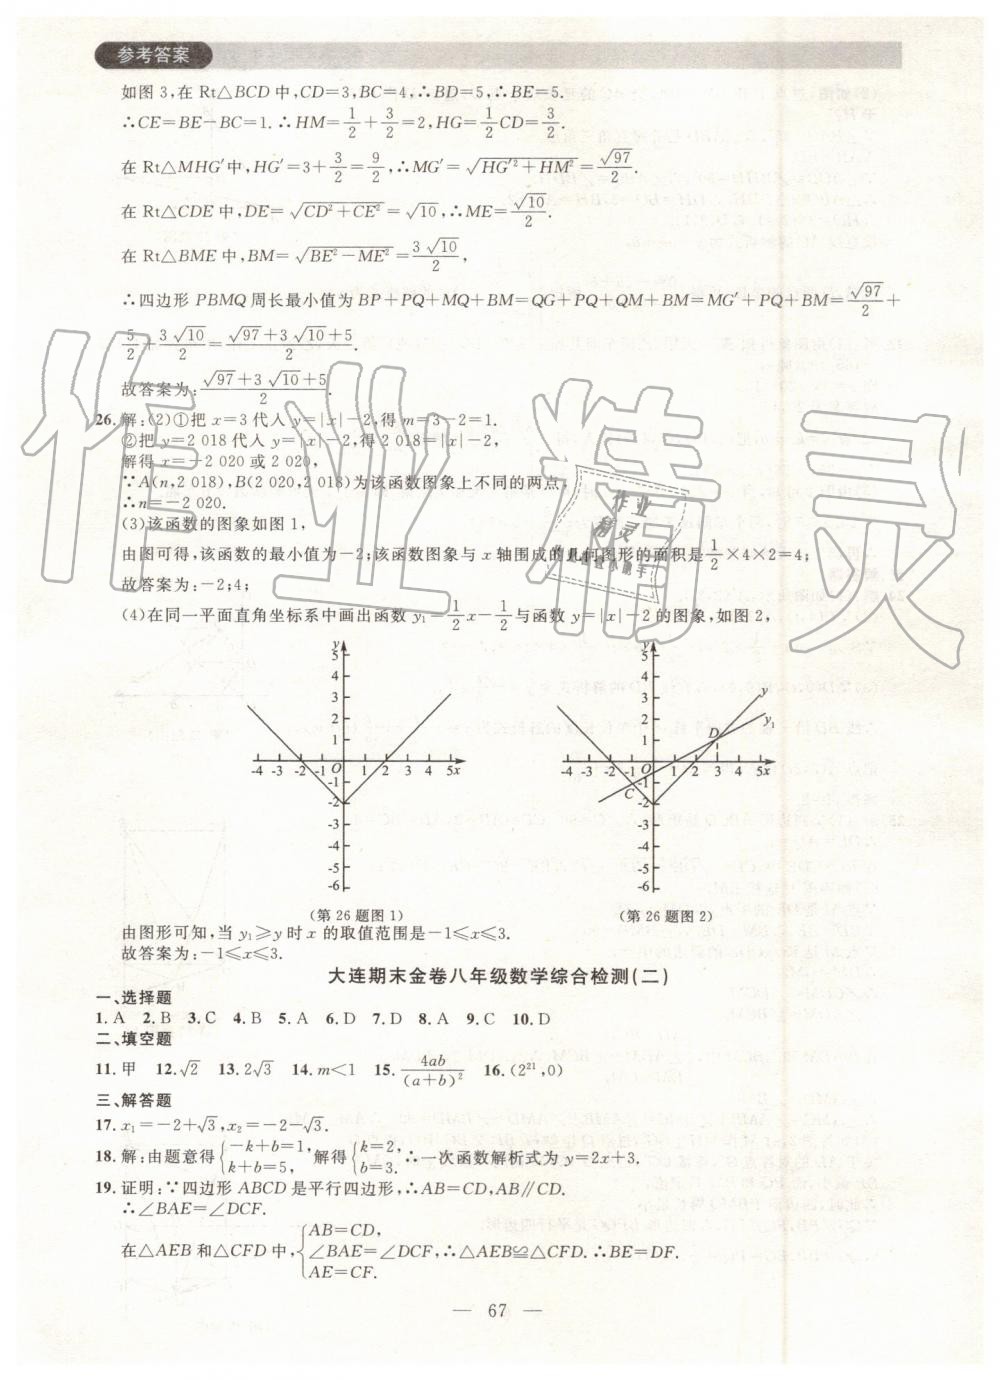 参考答案
如图 3,在 Rt△BCD 中,CD=3,BC=4,∴BD=5,∴BE=5.
∴CE=BE-BC=1.∴HM=1/2+3/2=2,HG=1/2CD=3/2.
在 Rt△MHG′中,HG′=3+3/2=9/2,∴MG′=√(HG′²+HM²)=√97/2.
在 Rt△CDE 中,DE=√(CD²+CE²)=√10,∴ME=√10/2.
在 Rt△BME 中,BM=√(BE²-ME²)=3√10/2,
∴四边形 PBMQ 周长最小值为 BP+PQ+MQ+BM=QG+PQ+QM+BM=MG′+PQ+BM=√97/2+
5/2+3√10/2=(√97+3√10+5)/2.
故答案为:(√97+3√10+5)/2.
26.解:(2)①把 x=3代入 y=|x|-2,得 m=3-2=1.
②把 y=2 018代入 y=|x|-2,得 2 018=|x|-2,
解得 x=-2 020 或 2 020,
∵A(n,2 018),B(2 020,2 018)为该函数图象上不同的两点,
∴n=-2 020.
(3)该函数的图象如图 1,
由图可得,该函数的最小值为-2;该函数图象与 x 轴围成的几何图形的面积是1/2×4×2=4;
故答案为:-2;4;
(4)在同一平面直角坐标系中画出函数 y₁=1/2x-1/2与函数 y=|x|-2 的图象,如图 2,
y
5
4
3
2
1
-4 -3 -2 -1 O 1 2 3 4 5x
-1
-2
-3
-4
-5
-6
(第 26题图 1)
y
5
4
3
2
1
y
y₁
D
C
-4 -3 -2 -1 O 1 2 3 4 5x
-1
-2
-3
-4
-5
-6
(第 26题图 2)
由图形可知,当 y₁≥y 时 x 的取值范围是-1≤x≤3.
故答案为:-1≤x≤3.
大连期末金卷八年级数学综合检测(二)
一、选择题
1. A 2. B 3. C 4. B 5. A 6. D 7. D 8. A 9. C 10. D
二、填空题
11. 甲 12. √2 13. 2√3 14. m<1 15. 4ab/(a+b)² 16. (2²¹,0)
三、解答题
17. x₁=-2+√3,x₂=-2-√3.
18. 解:由题意得{-k+b=1, k+b=5, 解得{k=2, b=3. ∴一次函数解析式为 y=2x+3.
19. 证明:∵四边形 ABCD 是平行四边形,∴AB=CD,AB∥CD.
∴∠BAE=∠DCF.
在△AEB 和△CFD 中,{AB=CD, ∠BAE=∠DCF, AE=CF. ∴△AEB≌△CFD.∴BE=DF.
— 67 —
作业精灵
作业
精灵